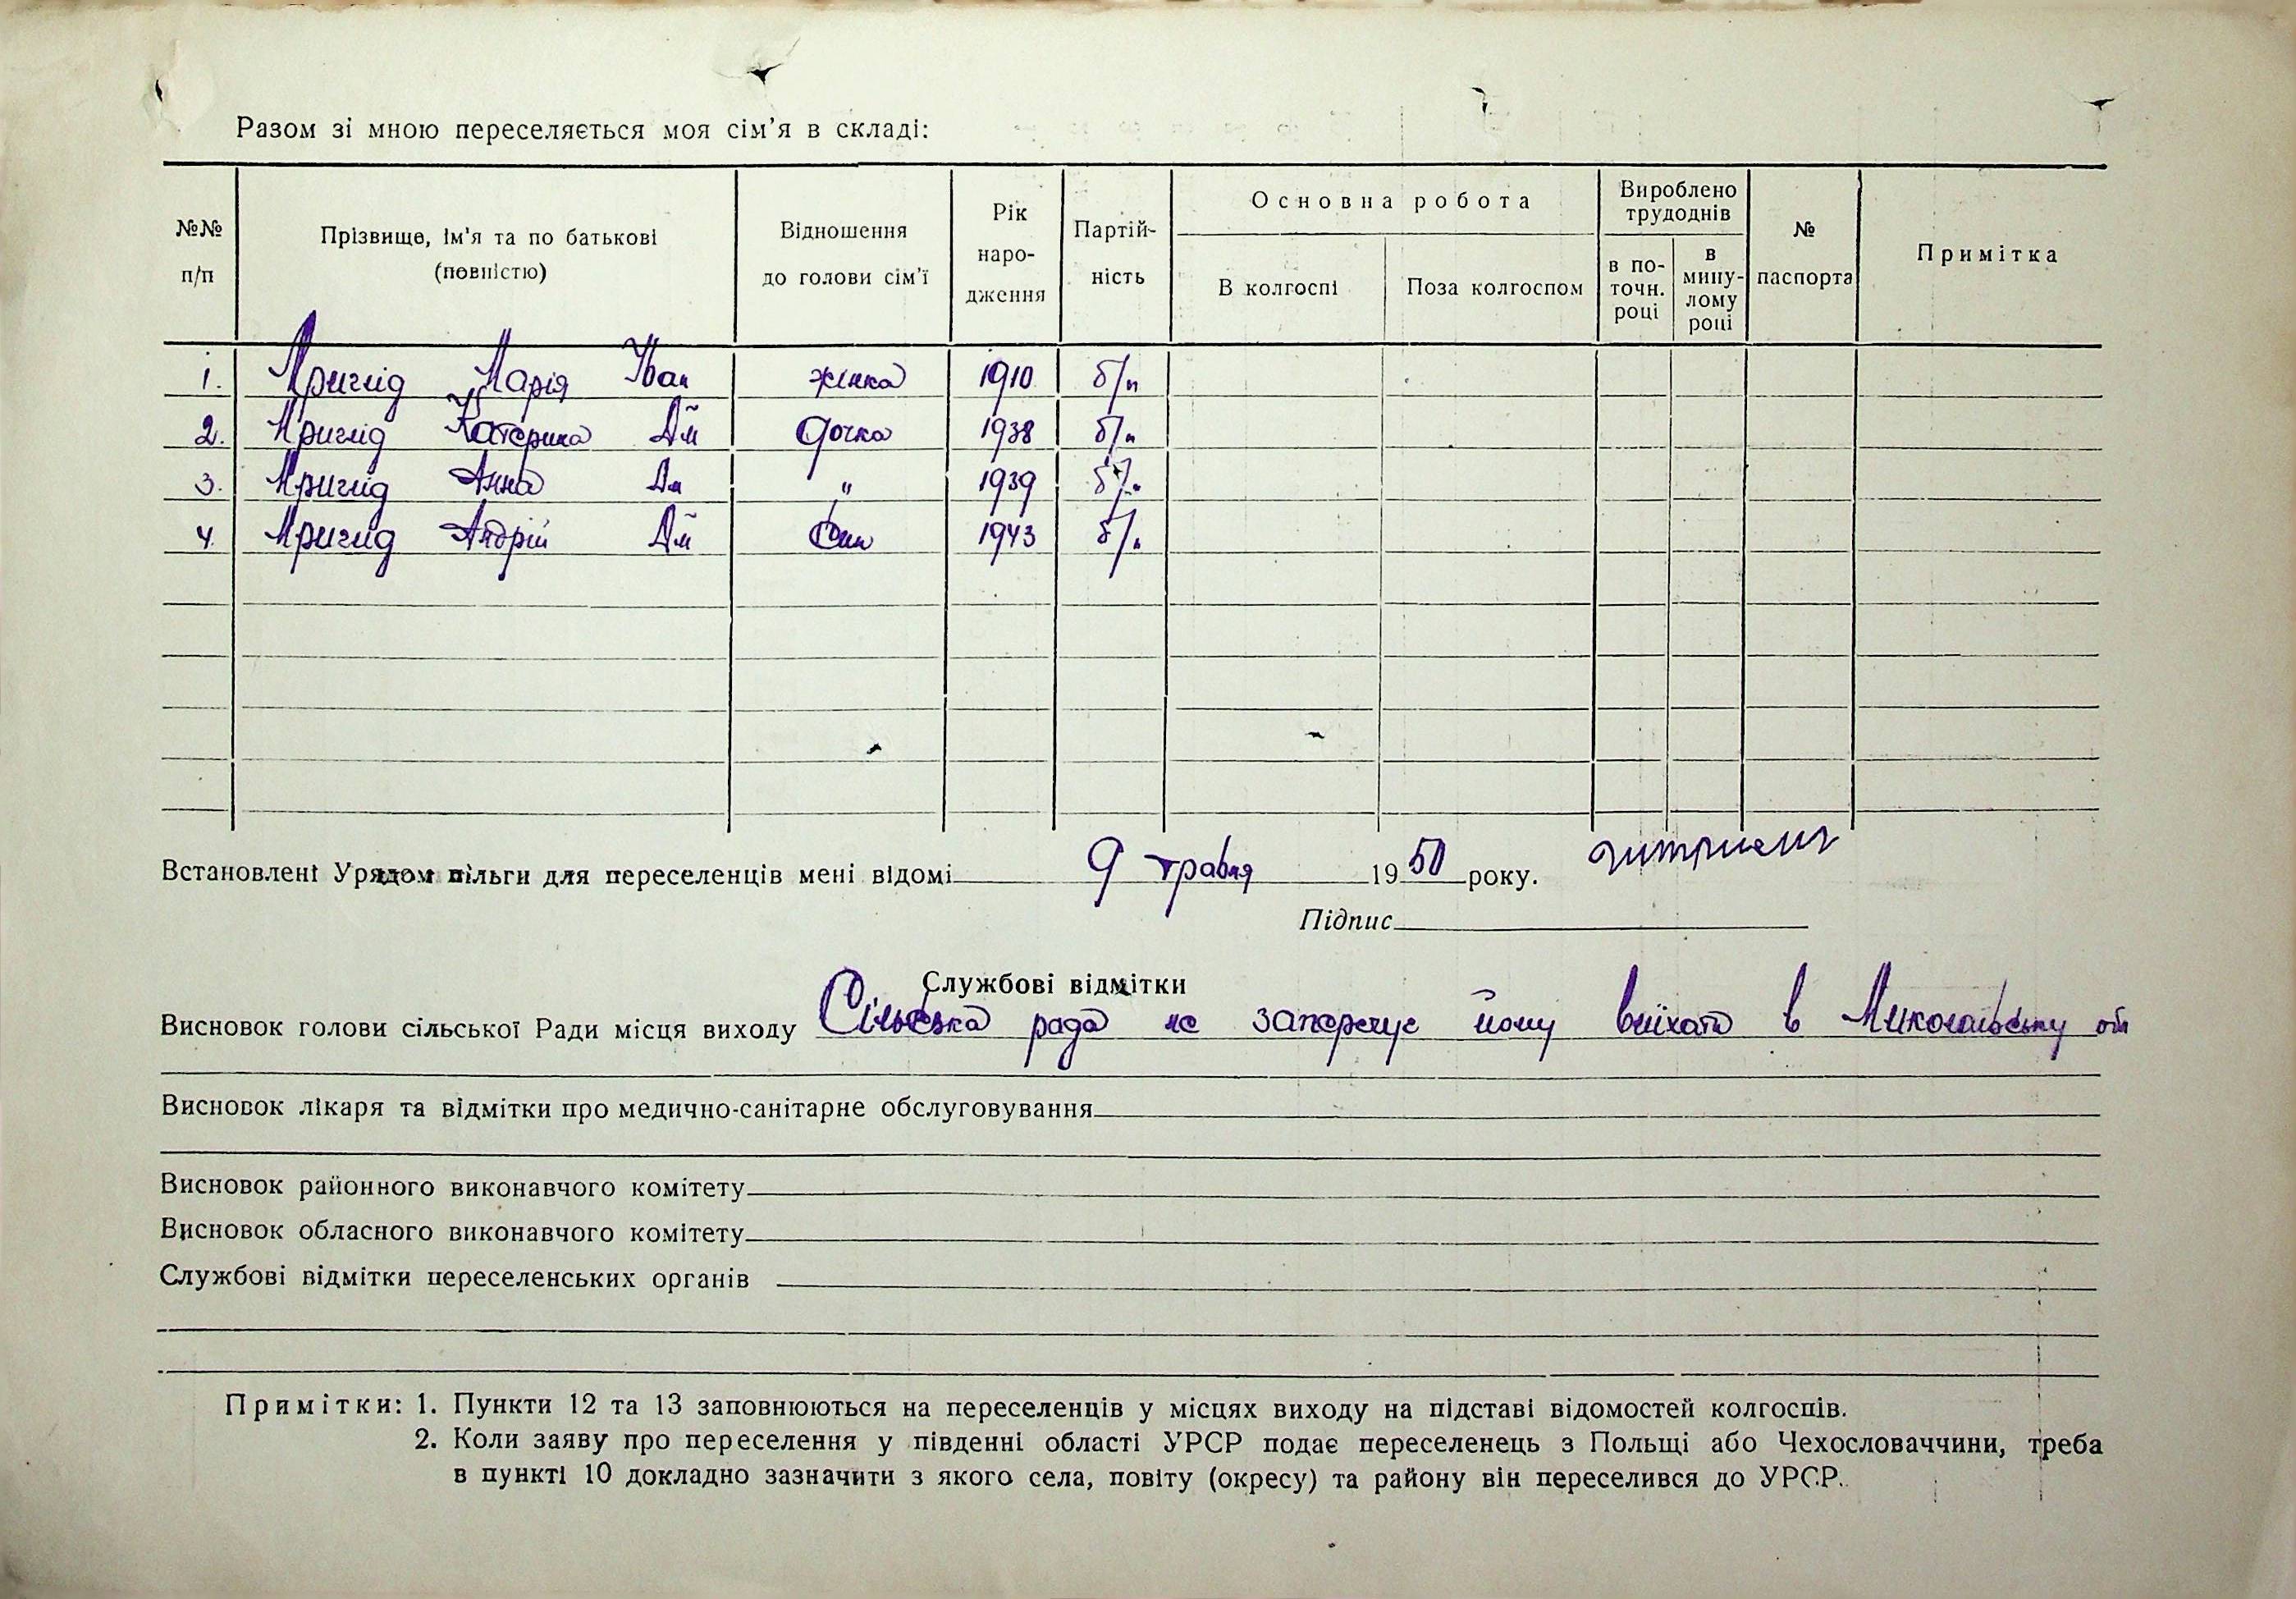 Разом зі мною переселяється моя сім'я в складі:
№№ п/п
Прізвище, ім'я та по батькові (повністю)
Відношення до голови сім'ї
Рік народження
Партійність
Основна робота
В колгоспі
Поза колгоспом
Вироблено трудоднів
в поточн. році
в минулому році
№ паспорта
Примітка
1. Приглід Марія Іван жінка 1910 б/п
2. Приглід Катерина Дм дочка 1938 б/п
3. Приглід Анна Дм " 1939 б/п
4. Приглід Андрій Дм син 1943 б/п
Встановлені Урядом пільги для переселенців мені відомі 9 травня 1950 року.
Підпис
Службові відмітки
Висновок голови сільської Ради місця виходу Сільська рада не заперечує йому виїхати в Миколаївську обл
Висновок лікаря та відмітки про медично-санітарне обслуговування
Висновок районного виконавчого комітету
Висновок обласного виконавчого комітету
Службові відмітки переселенських органів
Примітки: 1. Пункти 12 та 13 заповнюються на переселенців у місцях виходу на підставі відомостей колгоспів.
2. Коли заяву про переселення у південні області УРСР подає переселенець з Польщі або Чехословаччини, треба
в пункті 10 докладно зазначити з якого села, повіту (окресу) та району він переселився до УРСР.